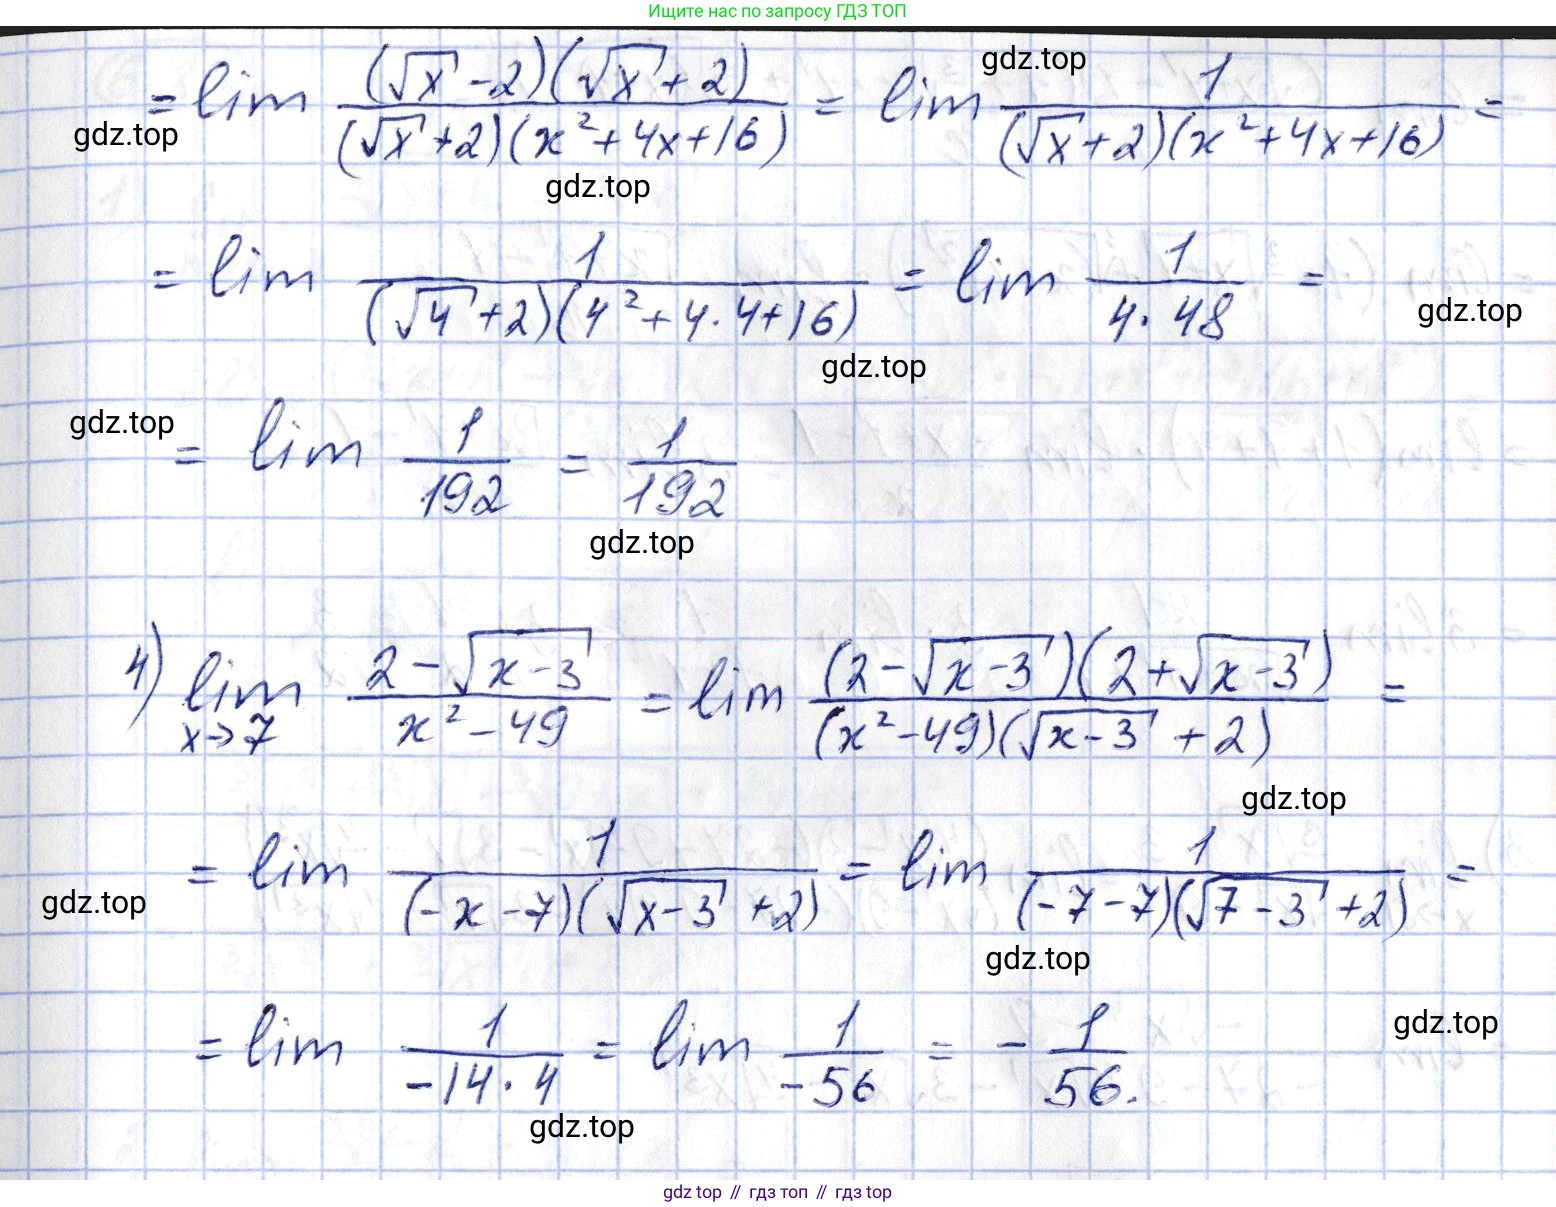 Ищите нас по запросу ГДЗ ТОП
= lim (√x - 2)(√x + 2) / (√x + 2)(x² + 4x + 16) = lim 1 / (√x + 2)(x² + 4x + 16) =
gdz.top
gdz.top
gdz.top
= lim 1 / (√4 + 2)(4² + 4 · 4 + 16) = lim 1 / 4 · 48 =
gdz.top
gdz.top
gdz.top
= lim 1/192 = 1/192
gdz.top
4) lim x→7 2 - √x-3 / x² - 49 = lim (2 - √x-3)(2 + √x-3) / (x² - 49)(√x-3 + 2) =
gdz.top
= lim 1 / (-x - 7)(√x-3 + 2) = lim 1 / (-7 - 7)(√7-3 + 2) =
gdz.top
gdz.top
= lim 1 / -14 · 4 = lim 1 / -56 = - 1/56.
gdz.top
gdz.top
gdz top // гдз топ // гдз top